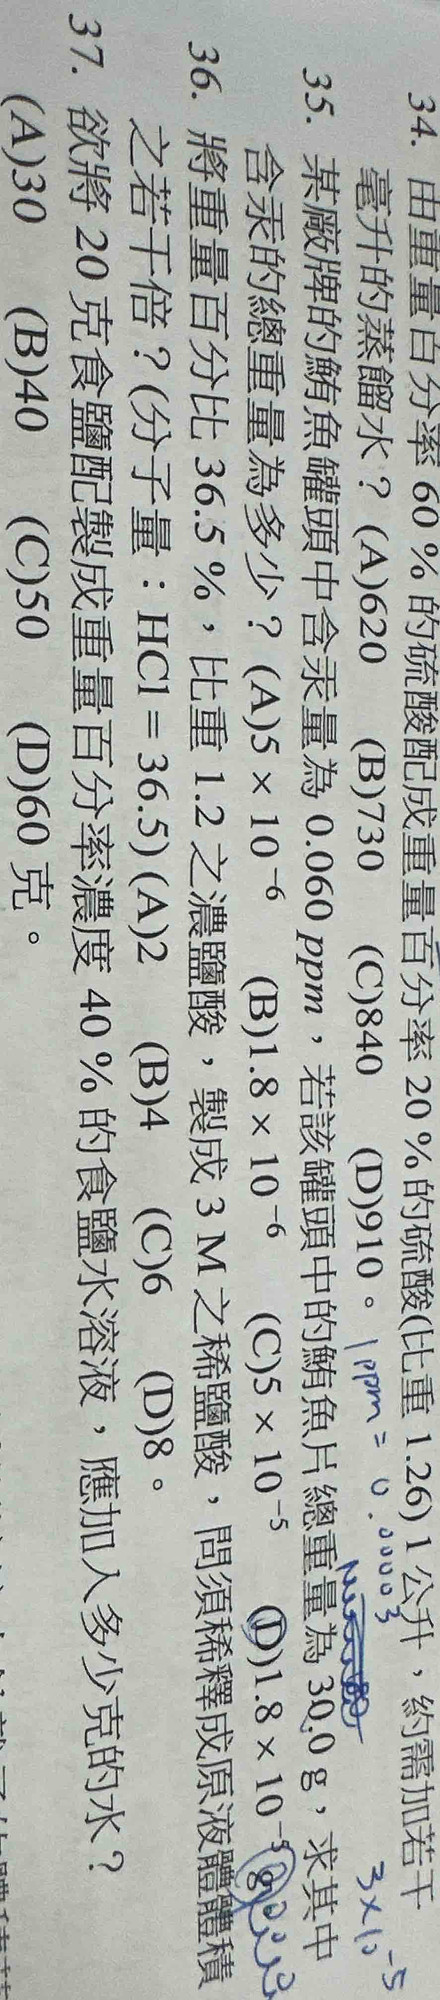 34. 由重量百分率 60 % 的硫酸配成重量百分率 20 % 的硫酸(比重 1.26) 1 公升，約需加若干
毫升的蒸餾水？(A)620 (B)730 (C)840 (D)910。
1ppm = 0.00003
3×10⁻⁵
35. 某廠牌的鮪魚罐頭中含汞量為 0.060 ppm，若該罐頭中的鮪魚片總重量為 30.0 g，求其中
含汞的總重量為多少？(A)5 × 10⁻⁶ (B)1.8 × 10⁻⁶ (C)5 × 10⁻⁵ (D)1.8 × 10⁻⁵ g。
36. 將重量百分比 36.5 %，比重 1.2 之濃鹽酸，製成 3 M 之稀鹽酸，問須稀釋成原液體體積
之若干倍？(分子量：HCl = 36.5) (A)2 (B)4 (C)6 (D)8。
37. 欲將 20 克食鹽配製成重量百分率濃度 40 % 的食鹽水溶液，應加入多少克的水？
(A)30 (B)40 (C)50 (D)60 克。